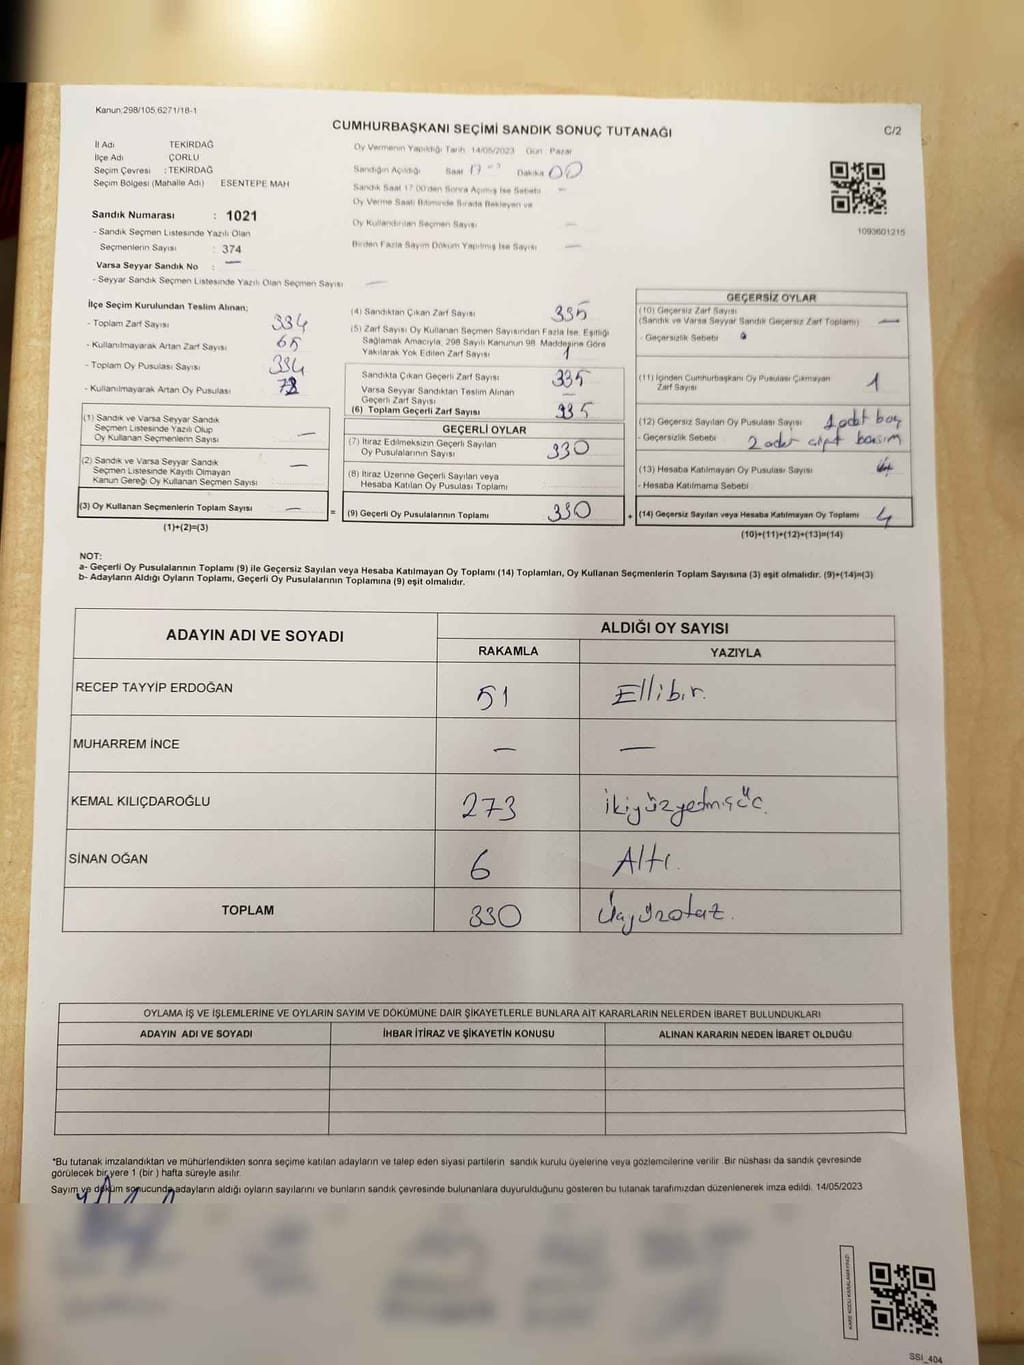 Kanun;298/105,6271/18-1
CUMHURBAŞKANI SEÇİMİ SANDIK SONUÇ TUTANAĞI
C/2
İl Adı TEKİRDAĞ
İlçe Adı ÇORLU
Seçim Çevresi : TEKİRDAĞ
Seçim Bölgesi (Mahalle Adı) ESENTEPE MAH
Sandık Numarası : 1021
- Sandık Seçmen Listesinde Yazılı Olan
Seçmenlerin Sayısı : 374
Varsa Seyyar Sandık No : —
- Seyyar Sandık Seçmen Listesinde Yazılı Olan Seçmen Sayısı —
Oy Vermenin Yapıldığı Tarih 14/05/2023 Gün Pazar
Sandığın Açıldığı Saat 17 Dakika 00
Sandık Saat 17:00'den Sonra Açılmış İse Sebebi —
Oy Verme Saati Bitiminde Sırada Bekleyen ve
Oy Kullandırılan Seçmen Sayısı —
Birden Fazla Sayım Döküm Yapılmış İse Sayısı —
1093601215
İlçe Seçim Kurulundan Teslim Alınan;
- Toplam Zarf Sayısı 334
- Kullanılmayarak Artan Zarf Sayısı 65
- Toplam Oy Pusulası Sayısı 334
- Kullanılmayarak Artan Oy Pusulası
(1) Sandık ve Varsa Seyyar Sandık
Seçmen Listesinde Yazılı Olup
Oy Kullanan Seçmenlerin Sayısı —
(2) Sandık ve Varsa Seyyar Sandık
Seçmen Listesinde Kayıtlı Olmayan
Kanun Gereği Oy Kullanan Seçmen Sayısı —
(3) Oy Kullanan Seçmenlerin Toplam Sayısı —
(1)+(2)=(3)
=
(4) Sandıktan Çıkan Zarf Sayısı 335
(5) Zarf Sayısı Oy Kullanan Seçmen Sayısından Fazla İse, Eşitliği
Sağlamak Amacıyla, 298 Sayılı Kanunun 98. Maddesine Göre
Yakılarak Yok Edilen Zarf Sayısı 1
Sandıkta Çıkan Geçerli Zarf Sayısı 335
Varsa Seyyar Sandıktan Teslim Alınan
Geçerli Zarf Sayısı —
(6) Toplam Geçerli Zarf Sayısı 335
GEÇERLİ OYLAR
(7) İtiraz Edilmeksizin Geçerli Sayılan
Oy Pusulalarının Sayısı 330
(8) İtiraz Üzerine Geçerli Sayılan veya
Hesaba Katılan Oy Pusulası Toplamı
(9) Geçerli Oy Pusulalarının Toplamı 330
+
GEÇERSİZ OYLAR
(10) Geçersiz Zarf Sayısı
(Sandık ve Varsa Seyyar Sandık Geçersiz Zarf Toplamı) —
- Geçersizlik Sebebi
(11) İçinden Cumhurbaşkanı Oy Pusulası Çıkmayan
Zarf Sayısı 1
(12) Geçersiz Sayılan Oy Pusulası Sayısı 1 adet boş
- Geçersizlik Sebebi 2 adet çift basım
(13) Hesaba Katılmayan Oy Pusulası Sayısı
- Hesaba Katılmama Sebebi
(14) Geçersiz Sayılan veya Hesaba Katılmayan Oy Toplamı 4
(10)+(11)+(12)+(13)=(14)
NOT:
a- Geçerli Oy Pusulalarının Toplamı (9) ile Geçersiz Sayılan veya Hesaba Katılmayan Oy Toplamı (14) Toplamları, Oy Kullanan Seçmenlerin Toplam Sayısına (3) eşit olmalıdır. (9)+(14)=(3)
b- Adayların Aldığı Oyların Toplamı, Geçerli Oy Pusulalarının Toplamına (9) eşit olmalıdır.
ADAYIN ADI VE SOYADI
ALDIĞI OY SAYISI
RAKAMLA YAZIYLA
RECEP TAYYİP ERDOĞAN 51 Ellibir.
MUHARREM İNCE — —
KEMAL KILIÇDAROĞLU 273 ikiyüzyetmişüç
SİNAN OĞAN 6 Altı.
TOPLAM 330 Üçyüzotuz.
OYLAMA İŞ VE İŞLEMLERİNE VE OYLARIN SAYIM VE DÖKÜMÜNE DAİR ŞİKAYETLERLE BUNLARA AİT KARARLARIN NELERDEN İBARET BULUNDUKLARI
ADAYIN ADI VE SOYADI İHBAR İTİRAZ VE ŞİKAYETİN KONUSU ALINAN KARARIN NEDEN İBARET OLDUĞU
*Bu tutanak imzalandıktan ve mühürlendikten sonra seçime katılan adayların ve talep eden siyasi partilerin sandık kurulu üyelerine veya gözlemcilerine verilir .Bir nüshası da sandık çevresinde
görülecek bir yere 1 (bir ) hafta süreyle asılır.
Sayım ve döküm sonucunda adayların aldığı oyların sayılarını ve bunların sandık çevresinde bulunanlara duyurulduğunu gösteren bu tutanak tarafımızdan düzenlenerek imza edildi. 14/05/2023
KARE KODU KARALAMAYINIZ!
SSI_404